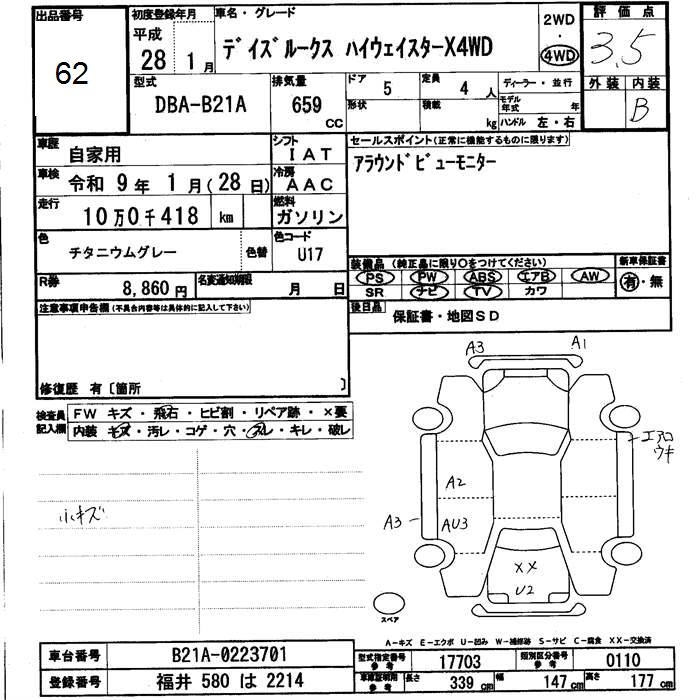 出品番号
62
初度登録年月
平成
28 1月
車名・グレード
デイズルークス ハイウェイスターX4WD
2WD
・
4WD
評価点
3.5
外装 内装
B
型式
DBA-B21A
排気量
659 CC
ドア 5
形状
定員 4 人
積載 kg
ディーラー・並行
モデル年式 年
ハンドル 左・右
車歴 自家用
シフト IAT
車検 令和 9年 1月(28日)
冷房 AAC
走行 10万0千418 km
燃料 ガソリン
色 チタニウムグレー 色替
色コード U17
R券 8,860円
名変通知期限 月 日
セールスポイント(正常に機能するものに限ります)
アラウンドビューモニター
装備品 (純正品に限り○をつけてください)
PS PW ABS エアB AW
SR ナビ TV カワ
新車保証書
有・無
後日品 保証書・地図SD
注意事項申告欄(不具合内容等は具体的に記入して下さい)
修復歴 有〔箇所 〕
検査員記入欄
FW キズ・飛石・ヒビ割・リペア跡・×要
内装 キズ・汚レ・コゲ・穴・スレ・キレ・破レ
小キズ
A3 A1
エアロ
ウキ
A2
A3 AU3
XX
U2
スペア
A-キズ E-エクボ U-凹み W-補修跡 S-サビ C-腐食 XX-交換済
車台番号 B21A-0223701
登録番号 福井 580 は 2214
型式指定番号 参考 17703
類別区分番号 参考 0110
車庫証明用 参考 長さ 339 cm 幅 147 cm 高さ 177 cm